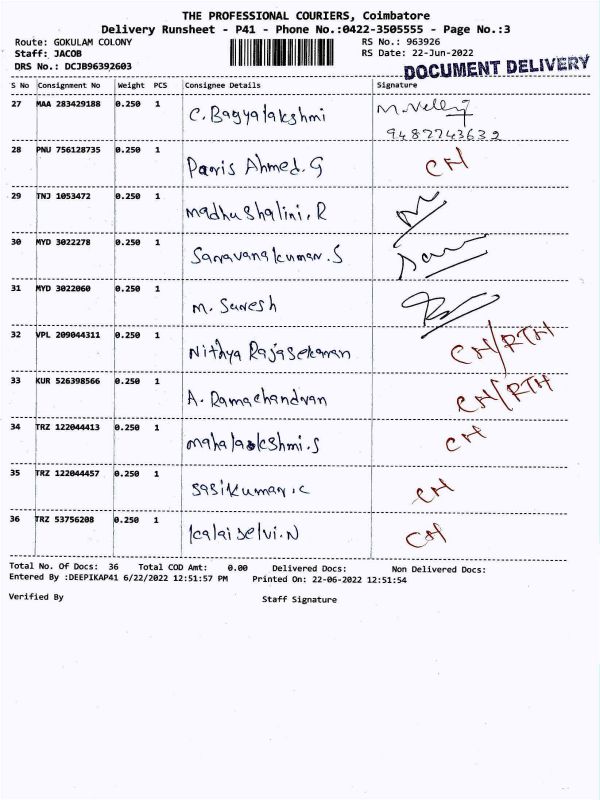 THE PROFESSIONAL COURIERS, Coimbatore
Delivery Runsheet - P41 - Phone No.:0422-3505555 - Page No.:3
Route: GOKULAM COLONY RS No.: 963926
Staff: JACOB RS Date: 22-Jun-2022
DRS No.: DCJB96392603 DOCUMENT DELIVERY
S No Consignment No Weight PCS Consignee Details Signature
27 MAA 283429188 0.250 1 C. Bagyalakshmi
9487743632
28 PNU 756128735 0.250 1 Parvis Ahmed. G CH
29 TNJ 1053472 0.250 1 Madhushalini. R
30 MYD 3022278 0.250 1 Saravanakumar. S
31 MYD 3022060 0.250 1 M. Suresh
32 VPL 209044311 0.250 1 Nithya Rajasekaran CH/RTH
33 KUR 526398566 0.250 1 A. Ramachandran CH/RTH
34 TRZ 122044413 0.250 1 Mahalakshmi. S CH
35 TRZ 122044457 0.250 1 Sasikumar. C CH
36 TRZ 53756208 0.250 1 Kalaiselvi. N CH
Total No. Of Docs: 36 Total COD Amt: 0.00 Delivered Docs: Non Delivered Docs:
Entered By :DEEPIKAP41 6/22/2022 12:51:57 PM Printed On: 22-06-2022 12:51:54
Verified By Staff Signature